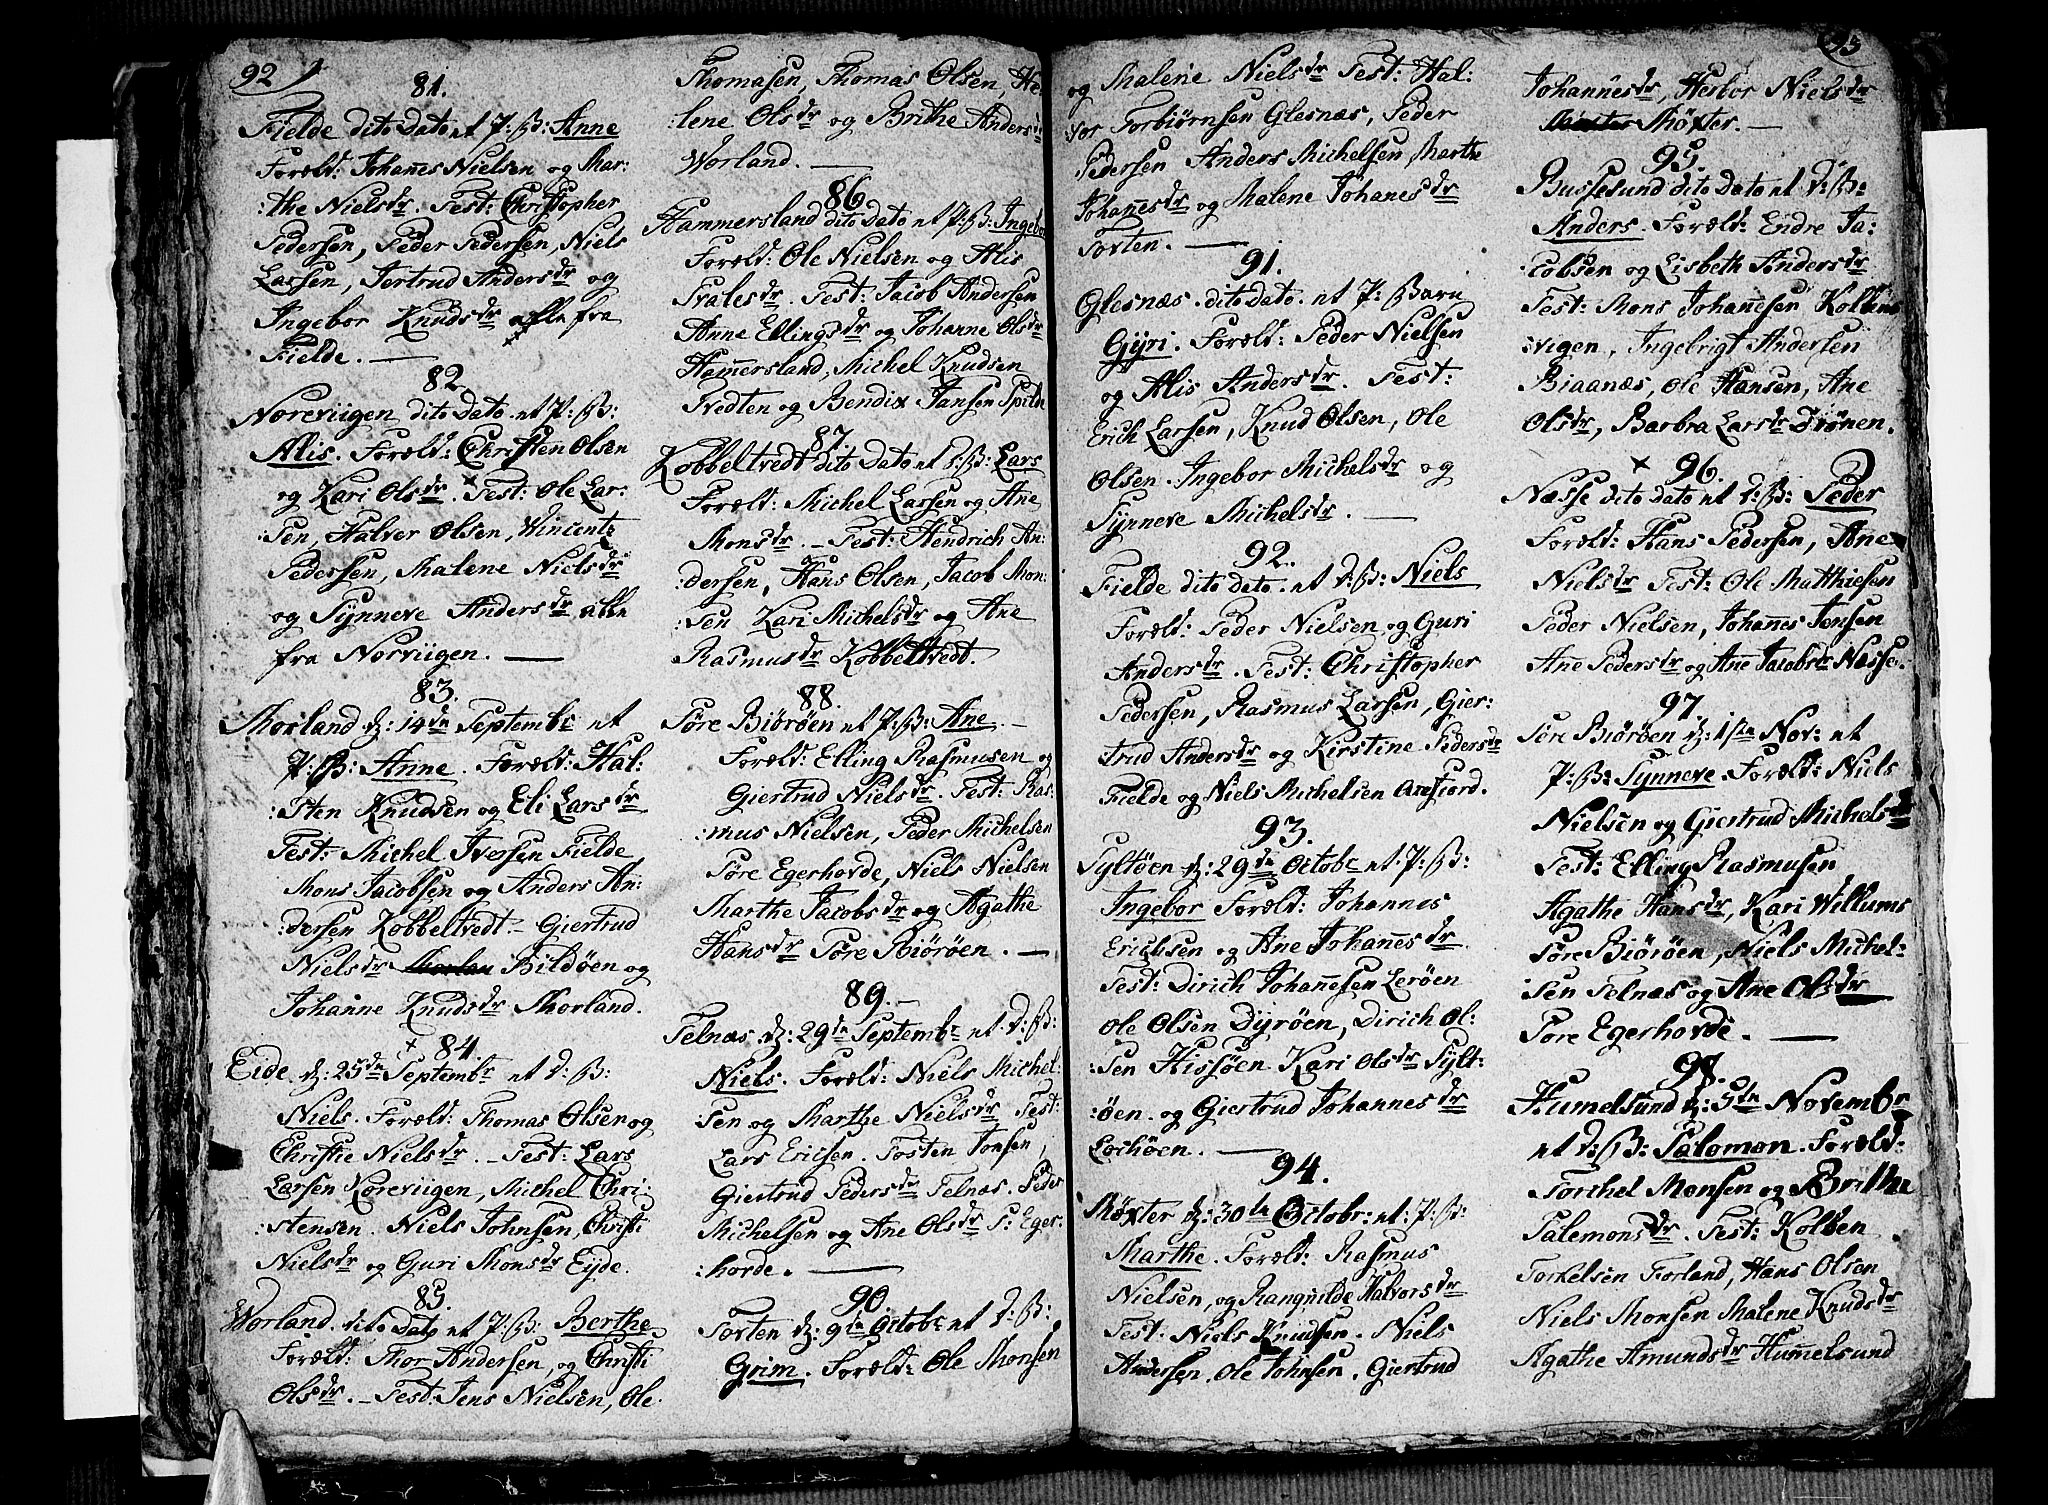 92
81.
Fielde dito Dato et P: B: Anne
Foræld: Johanes Nielsen og Mar:
:the Nielsdr. Test: Christopher
Pedersen, Peder Pedersen, Niels
Larsen, Gertrud Andersdr og
Ingebor Knudsdr alle fra
Fielde.
82.
Noreviigen dito Dato et P: B:
Alis. Foræld: Christen Olsen
og Kari Olsdr. Test: Ole Lar:
:sen, Halver Olsen, Vincentz
Pedersen, Malene Nielsdr
og Synneve Andersdr alle
fra Norviigen.
83.
Morland d: 14de Septembr et
P: B: Anne. Foræld: Hal:
:sten Knudsen og Eli Larsdr
Test: Michel Iversen Fielde,
Mons Jacobsen og Anders An:
:dersen Kobbeltvedt - Giertrud
Nielsdr Bildøen og
Johanne Knudsdr Morland.
84.
Eide d: 25de Septembr et D: B:
Niels. Foræld: Thomas Olsen og
Christie Nielsdr. - Test: Lars
Larsen Noreviigen, Michel Chri:
:stensen. Niels Johnsen, Christi
Nielsdr og Guri Monsdr Eyde.
85.
Worland dito Dato et P: B: Berthe
Foræld: Thor Andersen, og Christi
Olsdr. - Test: Jens Nielsen, Ole
Thomasen, Thomas Olsen, He:
:lene Olsdr og Brithe Andersdr
Worland.
86.
Hammersland dito Dato et P: B: Ingebor
Foræld: Ole Nielsen og Alis
Test: Jacob Andersen
Anne Ellingsdr og Johanne Olsdr
Hamersland, Michel Knudsen
Tvedten og Bendix Jansen Spilde
87.
Kobbeltvedt dito Dato et P: B: Lars
Foræld: Michel Larsen og Ane
Monsdr. - Test: Hendrich An:
:dersen, Hans Olsen, Jacob Mon:
:sen Kari Michelsdr og Ane
Rasmusdr Kobbeltvedt.
88.
Søre Biørøen et P: B: Ane. -
Foræld: Elling Rasmusen og
Giertrud Nielsdr. Test: Ras:
:mus Nielsen, Peder Michelsen
Søre Egerhovde, Niels Nielsen
Marthe Jacobsdr og Agathe
Hansdr Søre Biørøen.
89.
Telnæs d: 29de Septembr et D: B:
Niels. Foræld: Niels Michel:
:sen og Marthe Nielsdr Test:
Lars Ericsen. Tosten Jonsen,
Giertrud Pedersdr Telnæs. Peder
Michelsen og Ane Olsdr S: Eger:
:hovde.
90
Toften d: 9de Octobr et D: B:
Grim. Foræld: Ole Monsen
93
og Malene Nielsdr Test: Hal:
:vor Torbiørnsen Glesnæs, Peder
Pedersen Anders Michelsen Marthe
Johannesdr og Malene Johanesdr
Toften.
91.
Glesnæs. dito Dato. et P: Barn
Gyri. Foræld: Peder Nielsen
og Alis Andersdr. Test:
Erich Larsen, Knud Olsen, Ole
Olsen. Ingebor Michelsdr og
Synneve Michelsdr.
92.
Fielde dito dato. et D: B: Niels
Foræld: Peder Nielsen og Guri
Andersdr. Test: Christopher
Pedersen, Rasmus Larsen, Gier:
:trud Andersdr og Kirstine Pedersdr
Fielde og Niels Michelsen
93.
Syltøen d: 29de Octobr et P: B:
Ingebor Foræld: Johannes
Erichsen og Ane Johannesdr
Test: Dirich Johannesen Lerøen
Ole Olsen Dyrøen, Dirich Ol:
:sen Hissøen Kari Olsdr Sylt:
:øen. og Giertrud Johannesdr
Lochøen.
94.
Møxter d: 30te Octobr: et: P: B:
Marthe. Foræld: Rasmus
Nielsen, og Rangnilde Halvorsdr
Test: Niels Knudsen. Niels
Andersen. Ole Johnsen. Giertrud
Johannesdr, Herbor Nielsdr
Møxter.
95.
Bussesund dito Dato et D: B:
Anders. Foræld: Endre Ja:
:cobsen og Lisbeth Andersdr
Test: Mons Johannesen Kolbens
:vigen, Ingebrigt Andersen
Biaanæs, Ole Hansen, Ane
Olsdr, Barbra Larsdr Drønen.
96.
Næsse dito dato et D: B: Peder
Foræld: Hans Pedersen, Ane
Nielsdr Test: Ole Matthiesen
Peder Nielsen, Johannes Jensen
Ane Pedersdr og Ane Jacobsdr Næsse.
97
Søre Biørøen d: 1ste Nov: et
P: B: Synneve. Foræld: Niels
Nielsen og Giertrud Michelsdr
Test: Elling Rasmusen
Agathe Hansdr, Kari Willums
Søre Biørøen, Niels Michel:
:sen Telnæs og Ane Olsdr
Søre Egerhovde.
98.
Humelsund d: 5te Novembr
et D: B: Salomon. Foræld:
Torchel Monsen og Brithe
Salemonsdr. Test: Kolben
Torkelsen Forland, Hans Olsen
Niels Monsen Malene Knudsdr
Agathe Amundsdr Hummelsund